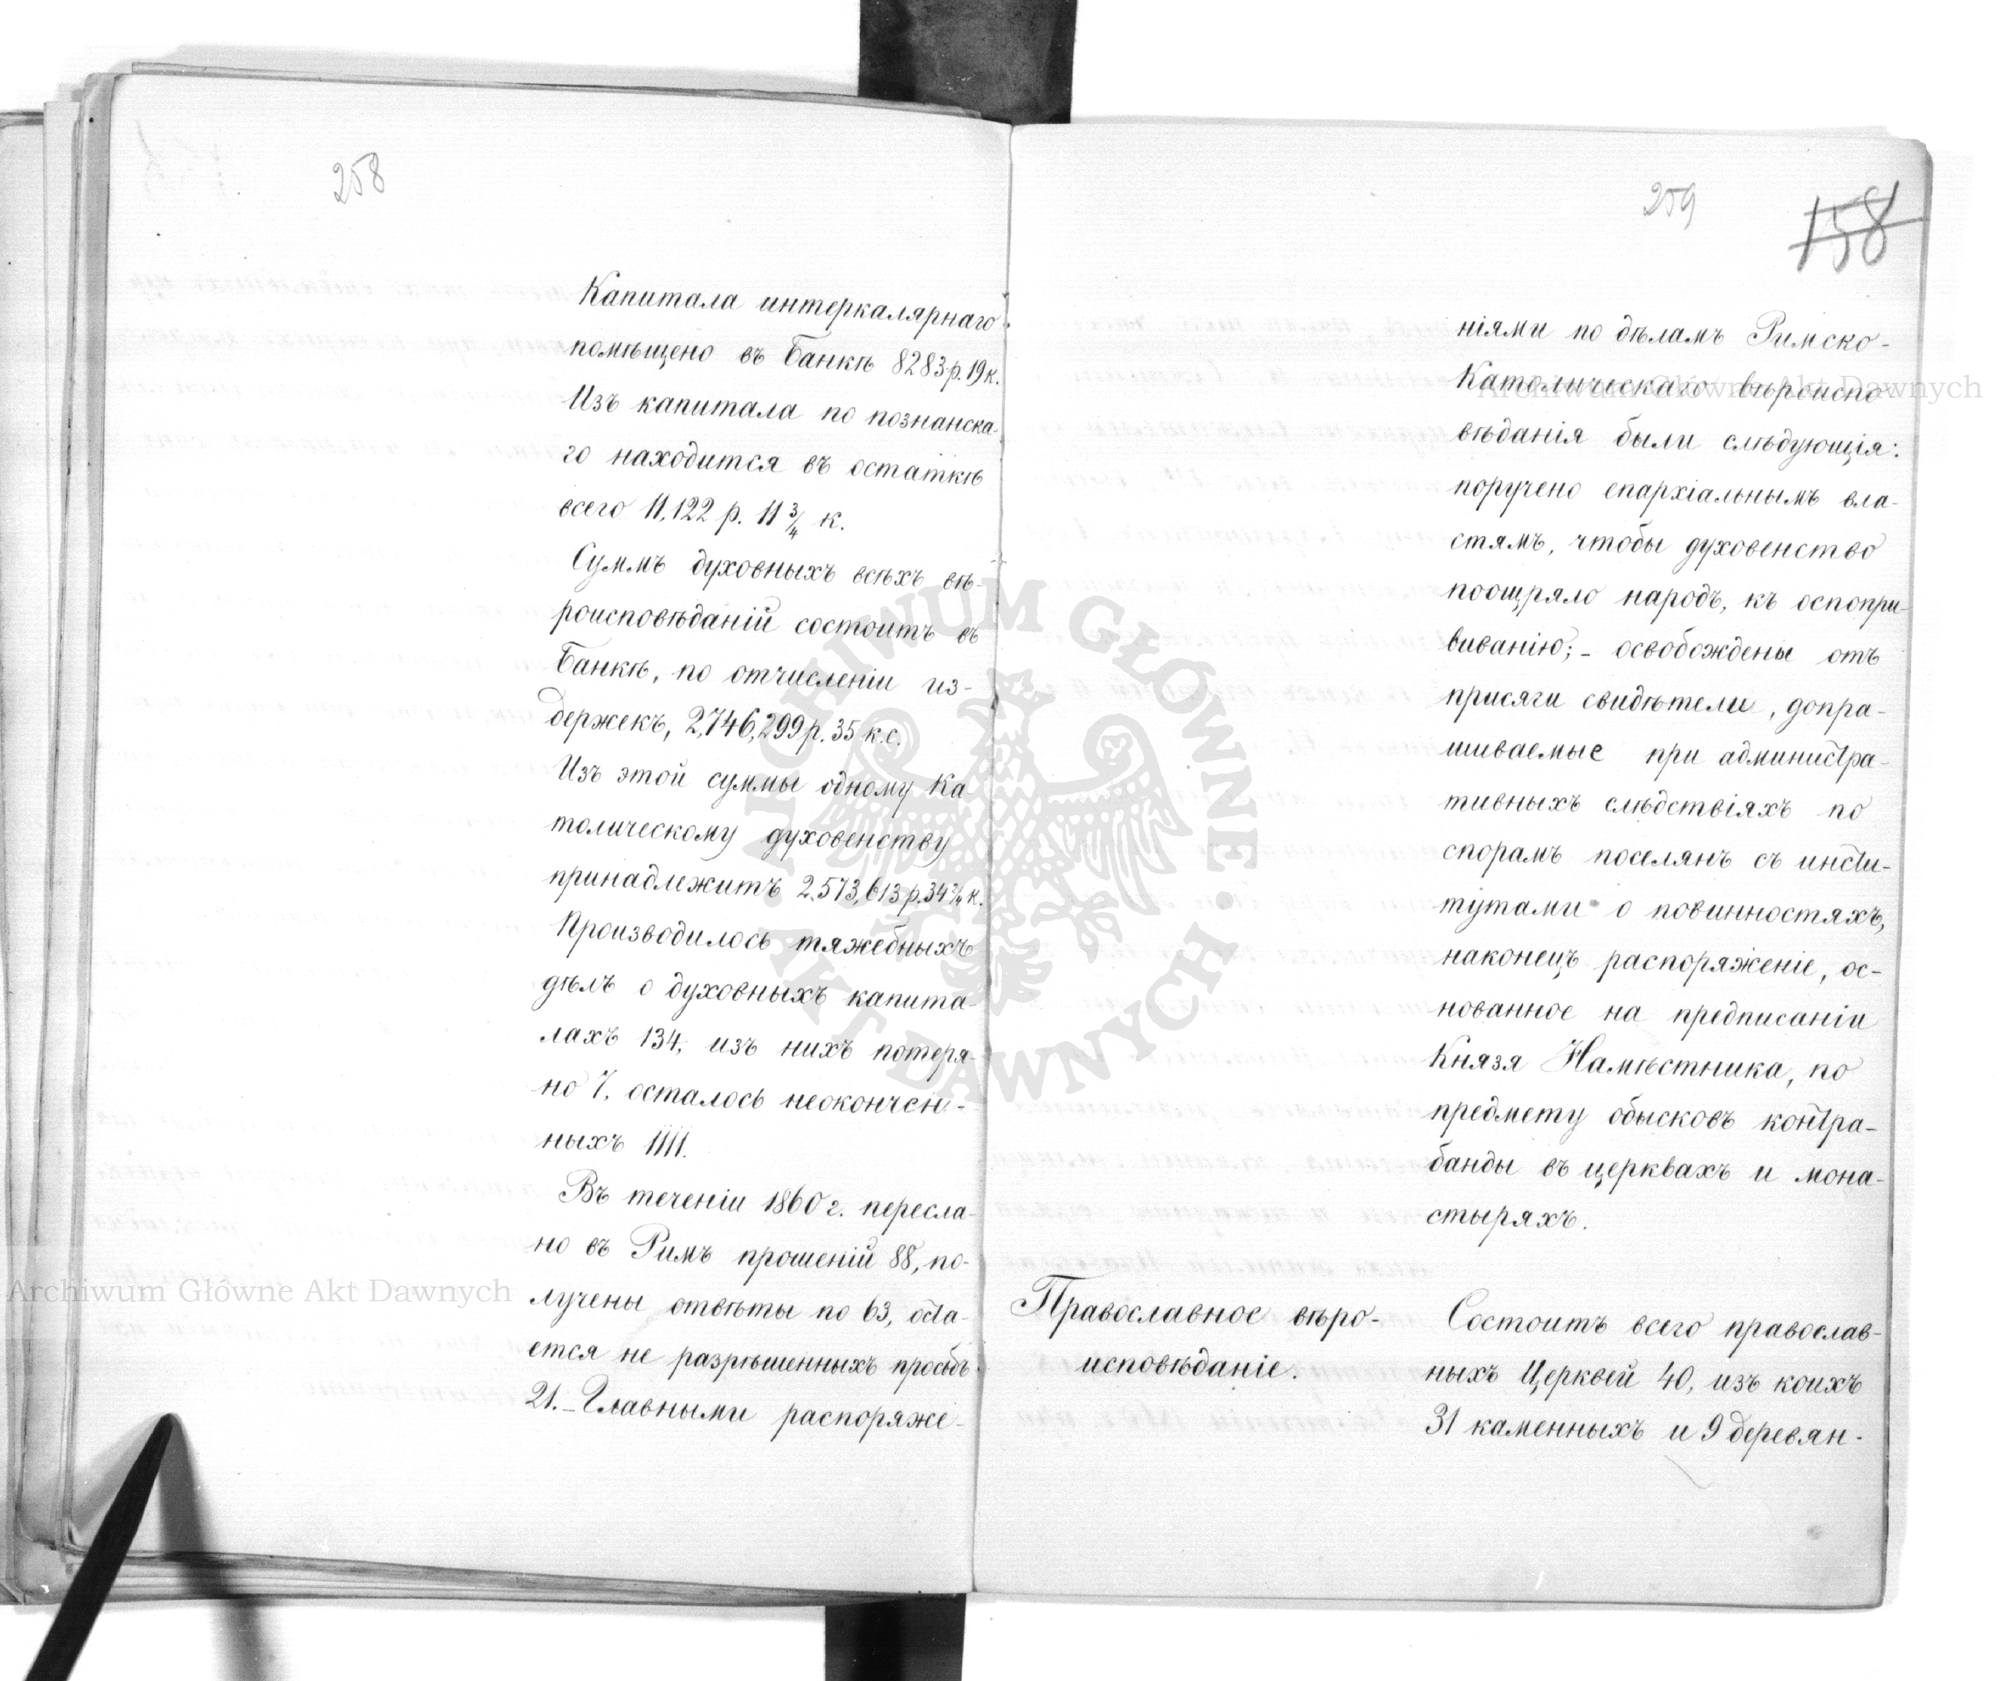 258
Капитала интеркалярнаго
помѣщено въ Банкѣ 8283 р. 19 к.
Изъ капитала по познанска-
го находится въ остаткѣ
всего 11,122 р. 11 3/4 к.
Суммъ духовныхъ всѣхъ вѣ-
роисповѣданій состоитъ въ
Банкѣ, по отчисленіи из-
держекъ, 2,746,299 р. 35 к.с.
Изъ этой суммы одному Ка-
толическому духовенству
принадлежитъ 2.573,613 р. 34 к.
Производилось тяжебныхъ
дѣлъ о духовныхъ капита-
лахъ 134, изъ нихъ потеря-
но 7, осталось неокончен-
ныхъ 1111.
Въ теченіи 1860 г. пересла-
но въ Римъ прошеній 88, по-
лучены отвѣты по 63, оста-
ется не разрѣшенныхъ просьбъ
21. - Главными распоряже-
259
158
ніями по дѣламъ Римско-
Католическаго вѣроиспо-
вѣданія были слѣдующія:
поручено епархіальнымъ вла-
стямъ, чтобы духовенство
поощряло народъ, къ оспопри-
виванію; - освобождены отъ
присяги свидѣтели, допра-
шиваемые при администра-
тивныхъ слѣдствіяхъ по
спорамъ поселянъ съ инсти-
тутами о повинностяхъ,
наконецъ распоряженіе, ос-
нованное на предписаніи
Князя Намѣстника, по
предмету обысковъ контра-
банды въ церквахъ и мона-
стыряхъ.
Православное вѣро-
исповѣданіе.
Состоитъ всего православ-
ныхъ Церквей 40, изъ коихъ
31 каменныхъ и 9 деревян-
Archiwum Główne Akt Dawnych
Archiwum Główne Akt Dawnych
ARCHIWUM GŁÓWNE AKT DAWNYCH